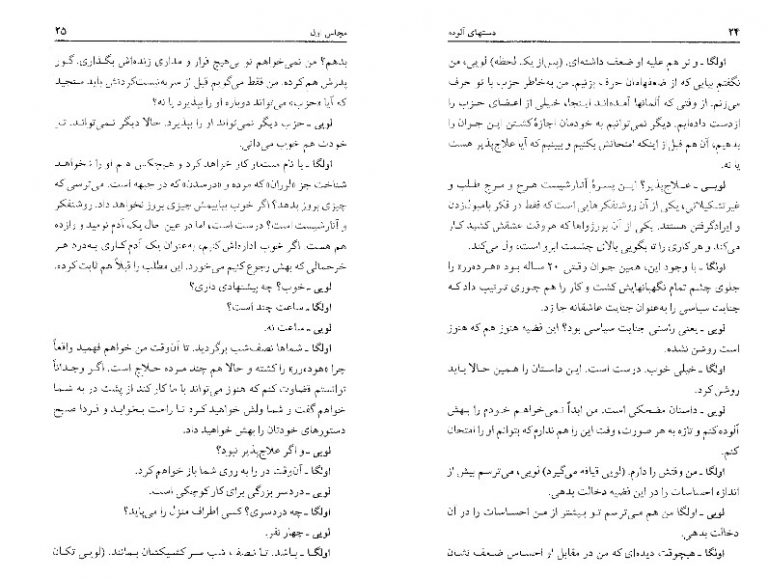 ۲۴ دستهای آلوده
اولگا ـ و تو هم علیه او ضعف داشته‌ای. (پس از یک لحظه) لویی، من
نگفتم بیایی که از ضعفهامان حرف بزنیم. من به‌خاطر حزب با تو حرف
می‌زنم. از وقتی که آلمانها آمده‌اند اینجا، خیلی از اعضای حزب را
ازدست داده‌ایم. دیگر نمی‌توانیم به خودمان اجازهٔ کشتن این جوان را
بدهیم، آن هم قبل از اینکه امتحانش بکنیم و ببینیم که آیا علاج‌پذیر هست
یا نه.
لویی ـ علاج‌پذیر؟ این پسرهٔ آنارشیست هرج و مرج طلب و
غیرتشکیلاتی، یکی از آن روشنفکرهایی است که فقط در فکر بامبول‌زدن
و ایرادگرفتن هستند. یکی از آن بورژواها که هروقت عشقش کشید کار
می‌کند و هر کاری را تا بگویی بالای چشمت ابرو است، ول می‌کند.
اولگا ـ با وجود این، همین جوان وقتی ۲۰ ساله بود «هوده‌رر» را
جلوی چشم تمام نگهبانهایش کشت و کار را هم جوری ترتیب داد که
جنایت سیاسی را به‌عنوان جنایت عاشقانه جا زد.
لویی ـ یعنی راستی جنایت سیاسی بود؟ این قضیه هنوز هم که هنوز
است روشن نشده.
اولگا ـ خیلی خوب. درست است. این داستان را همین حالا باید
روشن کرد.
لویی ـ داستان مضحکی است. من ابداً نمی‌خواهم خودم را بهش
آلوده کنم و تازه به هر صورت، وقت این را هم ندارم که بتوانم او را امتحان
کنم.
اولگا ـ من وقتش را دارم. (لویی قیافه می‌گیرد) لویی، می‌ترسم بیش از
اندازه احساسات را در این قضیه دخالت بدهی.
لویی ـ اولگا من هم می‌ترسم تو بیشتر از من احساسات را در آن
دخالت بدهی.
اولگا ـ هیچوقت دیده‌ای که من در مقابل از احساس ضعف نشان
مجلس اول ۲۵
بدهم؟ من نمی‌خواهم تو بی‌هیچ قرار و مداری زنده‌اش بگذاری. گور
پدرش هم کرده. من فقط می‌گویم قبل از سربه‌نیست‌کردنش باید سنجید
که آیا «حزب» می‌تواند دوباره او را بپذیرد یا نه؟
لویی ـ حزب دیگر نمی‌تواند او را بپذیرد. حالا دیگر نمی‌تواند. تو
خودت هم خوب می‌دانی.
اولگا ـ با نام مستعار کار خواهد کرد و هیچکس هم او را نخواهد
شناخت جز «لوران» که مرده و «درسدن» که در جبهه است. می‌ترسی که
چیزی بروز بدهد؟ اگر خوب بپاییمش چیزی بروز نخواهد داد. روشنفکر
و آنارشیست است؟ درست است، اما در عین حال یک آدم نومید و وازده
هم هست. اگر خوب اداره‌اش کنیم، به‌عنوان یک آدم کاری به‌درد هر
خرحمالی که بهش رجوع کنیم می‌خورد. این مطلب را قبلاً هم ثابت کرده.
لویی ـ خوب؟ چه پیشنهادی داری؟
اولگا ـ ساعت چند است؟
لویی ـ ساعت نه.
اولگا ـ شماها نصف‌شب برگردید. تا آن‌وقت من خواهم فهمید واقعاً
چرا «هوده‌رر» را کشته و حالا هم چند مرده حلاج است. اگر وجداناً
توانستم قضاوت کنم که هنوز می‌تواند با ما کار کند از پشت در به شما
خواهم گفت و شما ولش خواهید کرد تا راحت بخوابد و فردا صبح
دستورهای خودتان را بهش خواهید داد.
لویی ـ و اگر علاج‌پذیر نبود؟
اولگا ـ آن‌وقت در را به روی شما باز خواهم کرد.
لویی ـ دردسر بزرگی برای کار کوچکی است.
اولگا ـ چه دردسری؟ کسی اطراف منزل را می‌پاید؟
لویی ـ چهار نفر.
اولگا ـ باشد. تا نصف شب سر کشیکشان بمانند. (لویی تکان